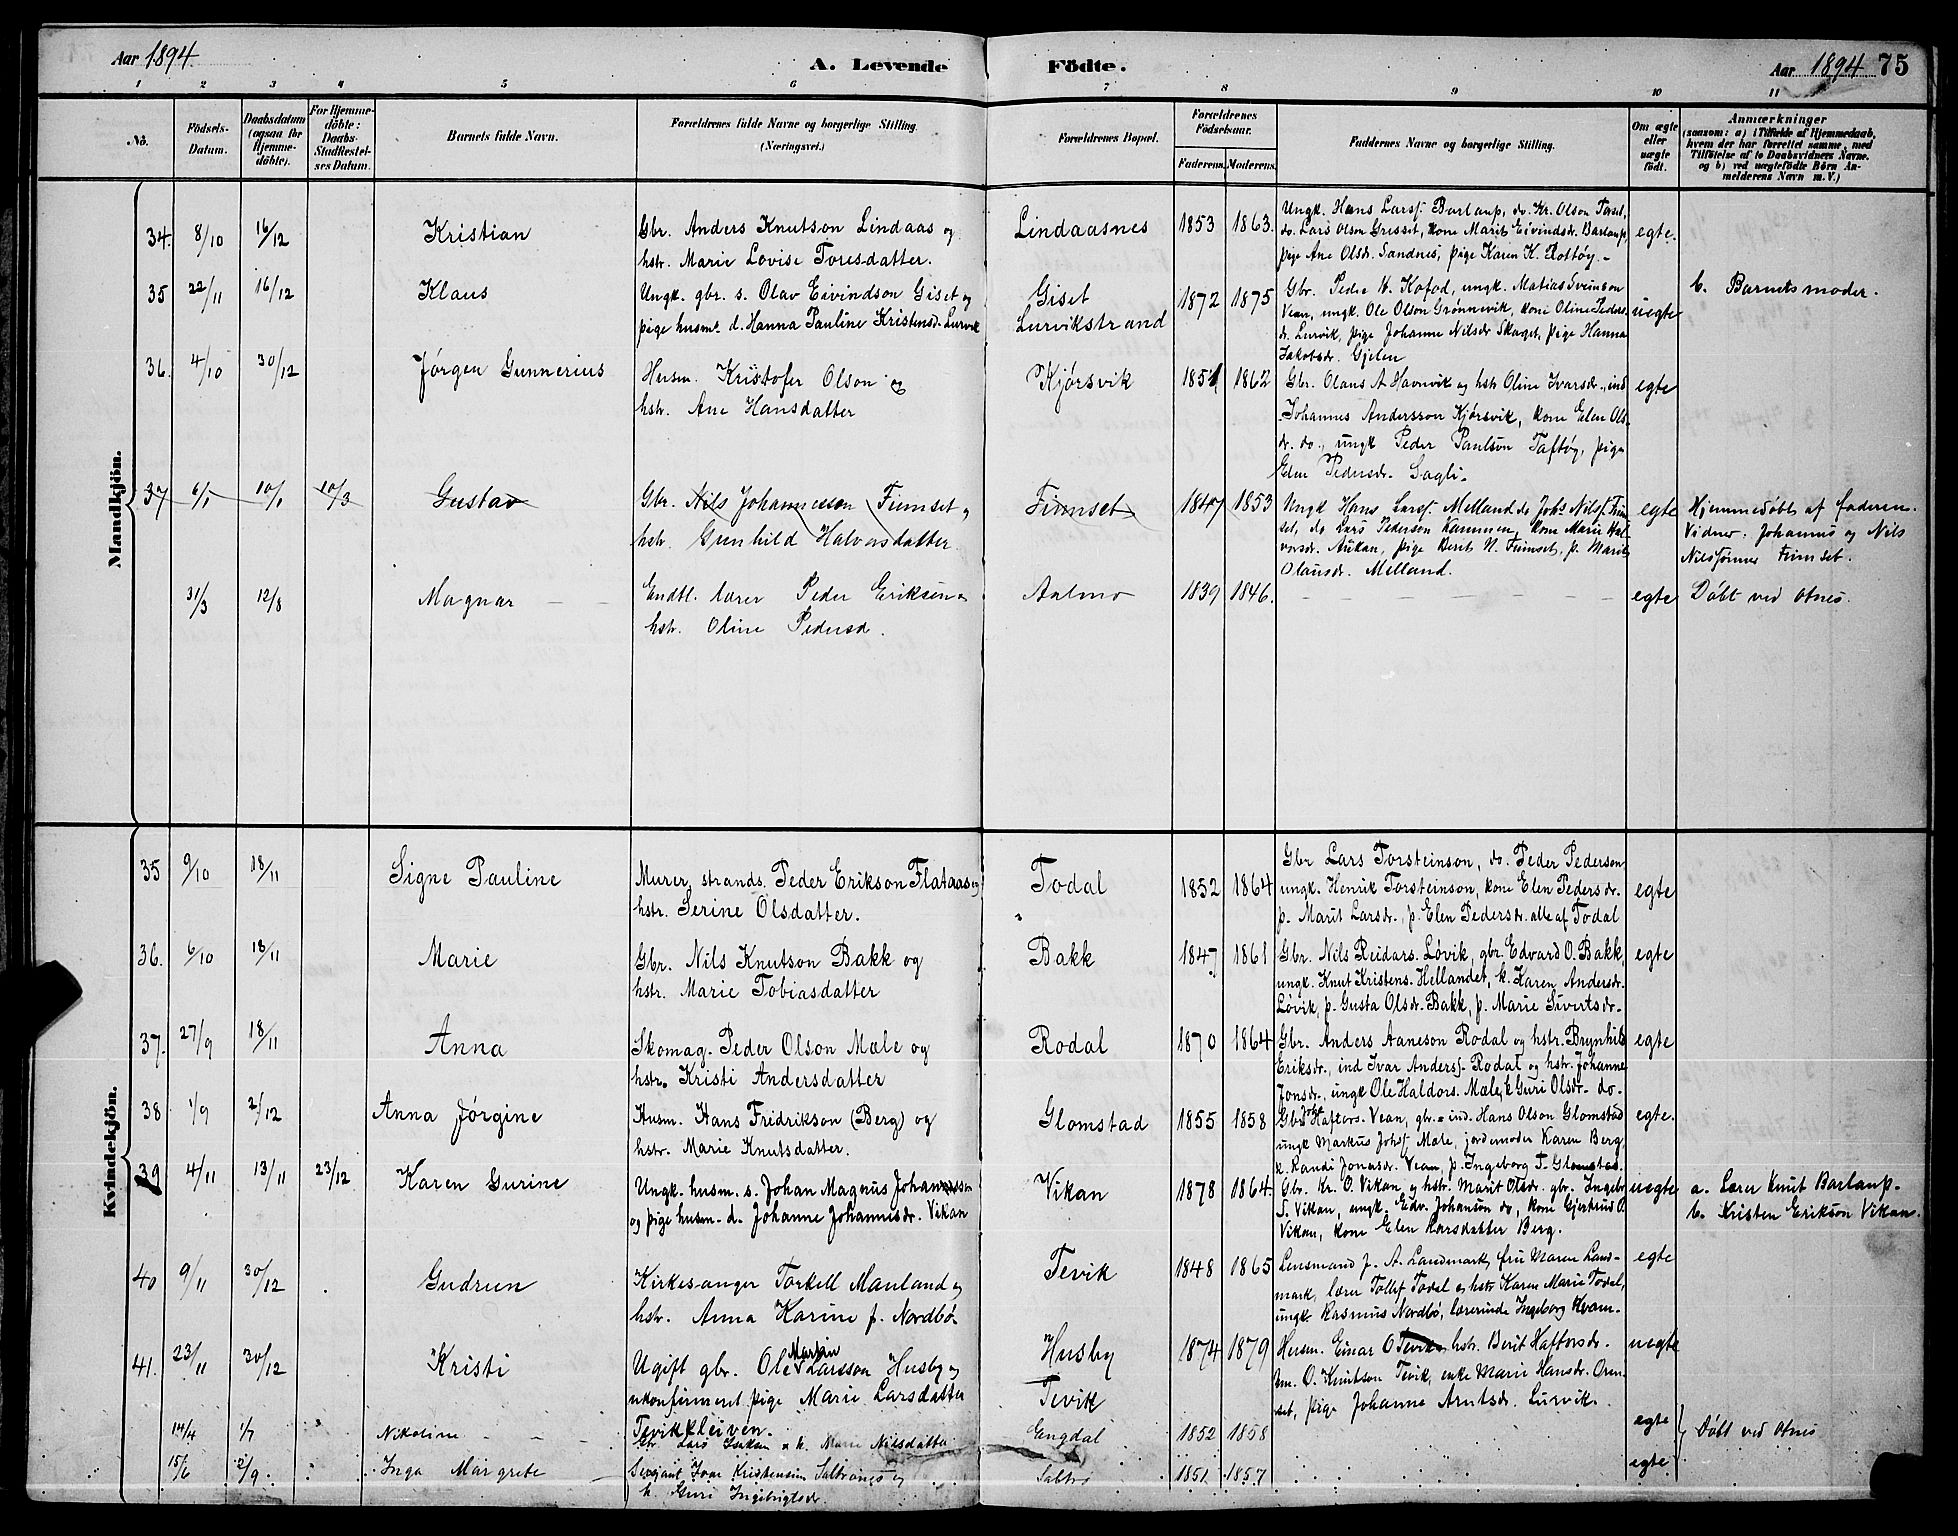 Aar 1894. A. Levende Födte. Aar 1894 75
1 2 3 4 5 6 7 8 9 10 11
No.
Födsels-Datum.
Daabsdatum (ogsaa for Hjemmedöbte).
For Hjemmedöbte: Daabs-Stadfæstelses Datum.
Barnets fulde Navn.
Forældrenes fulde Navne og borgerlige Stilling. (Næringsvei.)
Forældrenes Bopæl.
Forældrenes Födselsaar.
Faderens. Moderens.
Faddernes Navne og borgerlige Stilling.
Om ægte eller uægte födt.
Anmærkninger
(saasom: a) i Tilfælde af Hjemmedaab,
hvem der har forrettet samme, med
Tilföielse af to Daabsvidners Navne.
og b) ved uægtefödte Börn An-
melderens Navn m. V.)
Mandkjön.
34. 8/10 16/12 Kristian
Gbr. Anders Knutson Lindaas og
hstr. Marie Lovise Toresdatter.
Lindaasnes 1853 1863.
Ungk. Hans Larsf. Barlaup, do. Kr. Olson Torset,
do. Lars Olson Grisset, kone Marit Eivindsdr. Barlaup,
pige Ane Olsdr. Sandnes, pige Karen K. Rottøy.
egte.
35 22/11 16/12 Klaus
Ungk. gbr. s. Olav Eivindson Giset og
pige husm. d. Hanna Pauline Kristensd. Lurvik
Giset
Lurvikstrand
1872 1875
Gbr. Peder K. Hofod, ungk. Matias Sveinson
Vean, ungk. Ole Olson Grønnevik, kone Oline Peders-
dr. Lurvik, pige Johanne Nilsdr Skaget, pige Hanna
Jakobsdr. Gjelen
uegte
b. Barnets moder.
36. 4/10 30/12 Jørgen Gunnerius
Husm. Kristofer Olson og
hstr. Ane Hansdatter
Kjørsvik 1851 1862
Gbr. Olaus A Havnvik og hstr Oline Ivarsdr., ind
Johannes Andersson Kjørsvik, kone Elen Ols-
dr. do., ungk Peder Paulson Taftøy, pige
Elen Pedersdr. Sagli.
egte
37 6/1 10/1 10/3 Gustav
Gbr. Nils Johannesson Fumset og
hstr. Gunhild Halvorsdatter.
Fumset 1847 1853
Ungk Hans Larsf. Melland, do Johs Nilsf. Fum-
set, do Lars Pederson Kammen, kone Marie Hal-
vorsdr. Aukan, pige Berit N. Fumset, p. Marit
Olausdr. Melland.
egte
Hjemmedøbt af faderen.
Vidner. Johannes og Nils
Nilsfønner Fumset.
31/3 12/8 Magnar
Emdtl. lærer Peder Eriksen og
hstr. Oline Pedersd.
Aalmo 1839 1846.
egte Døbt ved Otnes.
Kvindekjön.
35 9/10 18/11 Signe Pauline
Murer, strands. Peder Erikson Flataas og
hstr. Serine Olsdatter.
Todal 1852 1864
Gbr Lars Torsteinson, do. Peder Pederson
ungk. Henrik Torsteinson, kone Elen Pedersdr.
p. Marit Larsdr., p. Elen Pedersdr. alle af Todal
egte
36. 6/10 18/11 Marie
Gbr. Nils Knutson Bakk og
hstr. Marie Tobiasdatter
Bakk 1847 1861
Gbr. Nils Reidars. Løvik, gbr. Edvard O. Bakk,
ungk. Knut Kristens. Hellandet, k. Karen Andersdr.
Løvik, p. Gusta Olsdr. Bakk, p. Marie Sivertsdr.
egte
37. 27/9 18/11 Anna
Skomag. Peder Olson Mæle og
hstr. Kristi Andersdatter
Rodal 1870 1864
Gbr. Anders Aaneson Rodal og hstr. Brynhild
Eriksdr., ind Ivar Andersf. Rodal og hstr. Johanne
Jonsdr., ungk Ole Haldors. Mæle, k Guri Olsdr. do.
egte
38 1/9 2/12 Anna Jørgine
Husm. Hans Fridrikson (Berg) og
hstr. Marie Knutsdatter.
Glomstad 1855 1858
Gbr Haftors. Vean, gbr. ind. Hans Olson Glomstad
ungk Markus Johsf Mæle, jordemoder Karen Berg,
k. Randi Jonasdr. Vean, p. Ingeborg T. Glomstad.
egte.
39 4/11 13/11 23/12 Karen Gurine
Ungk. husm. s. Johan Magnus Johannesson
og pige husm. d. Johanne Johannesdr. Vikan
Vikan 1878 1864.
Gbr. Kr. O. Vikan og hstr. Marit Olsdr. gbr. Ingebr
S. Vikan, ungk. Edv. Johanson do, kone Gjertrud O.
Vikan, kone Elen Larsdatter Berg.
uegte
a. Lærer Knut Barlaup.
b. Kristen Erikson Vikan.
40 9/11 30/12 Gudrun
Kirkesanger Torkell Mauland og
hstr. Anna Karine f. Nordbø.
Tevik 1848 1865
Lensmand J. A. Landmark, fru Maren Land-
mark, lærer Tollef Todal og hstr Karen Marie Todal,
ungk Rasmus Nordbø, lærerinde Ingeborg Kvam.
egte
41. 23/11 30/12 Kristi
Ugift gbr. Ole Marian Larsson Husby og
ukonfirmeret pige Marie Larsdatter
Tevikkleiven.
Husby
Tevik
1874 1879
Husm. Einar O Tevik hstr. Berit Haftorsdr.
hm. O. Knutson Tevik, enke Marie Hansdr. Oren-
set, pige Johanna Arntsdr. Lurvik.
uegte
14/4 1/7 Nikoline
Gbr. Lars Isaksen og h. Marie Nilsdatter
Engdal 1852 1858
egte Døbt ved Otnes
15/6 2/9. Inga Margrete
Sergiant Ivar Kristensen Saltrønes og
h. Guri Ingebrigtsdr
1851 1857
egte